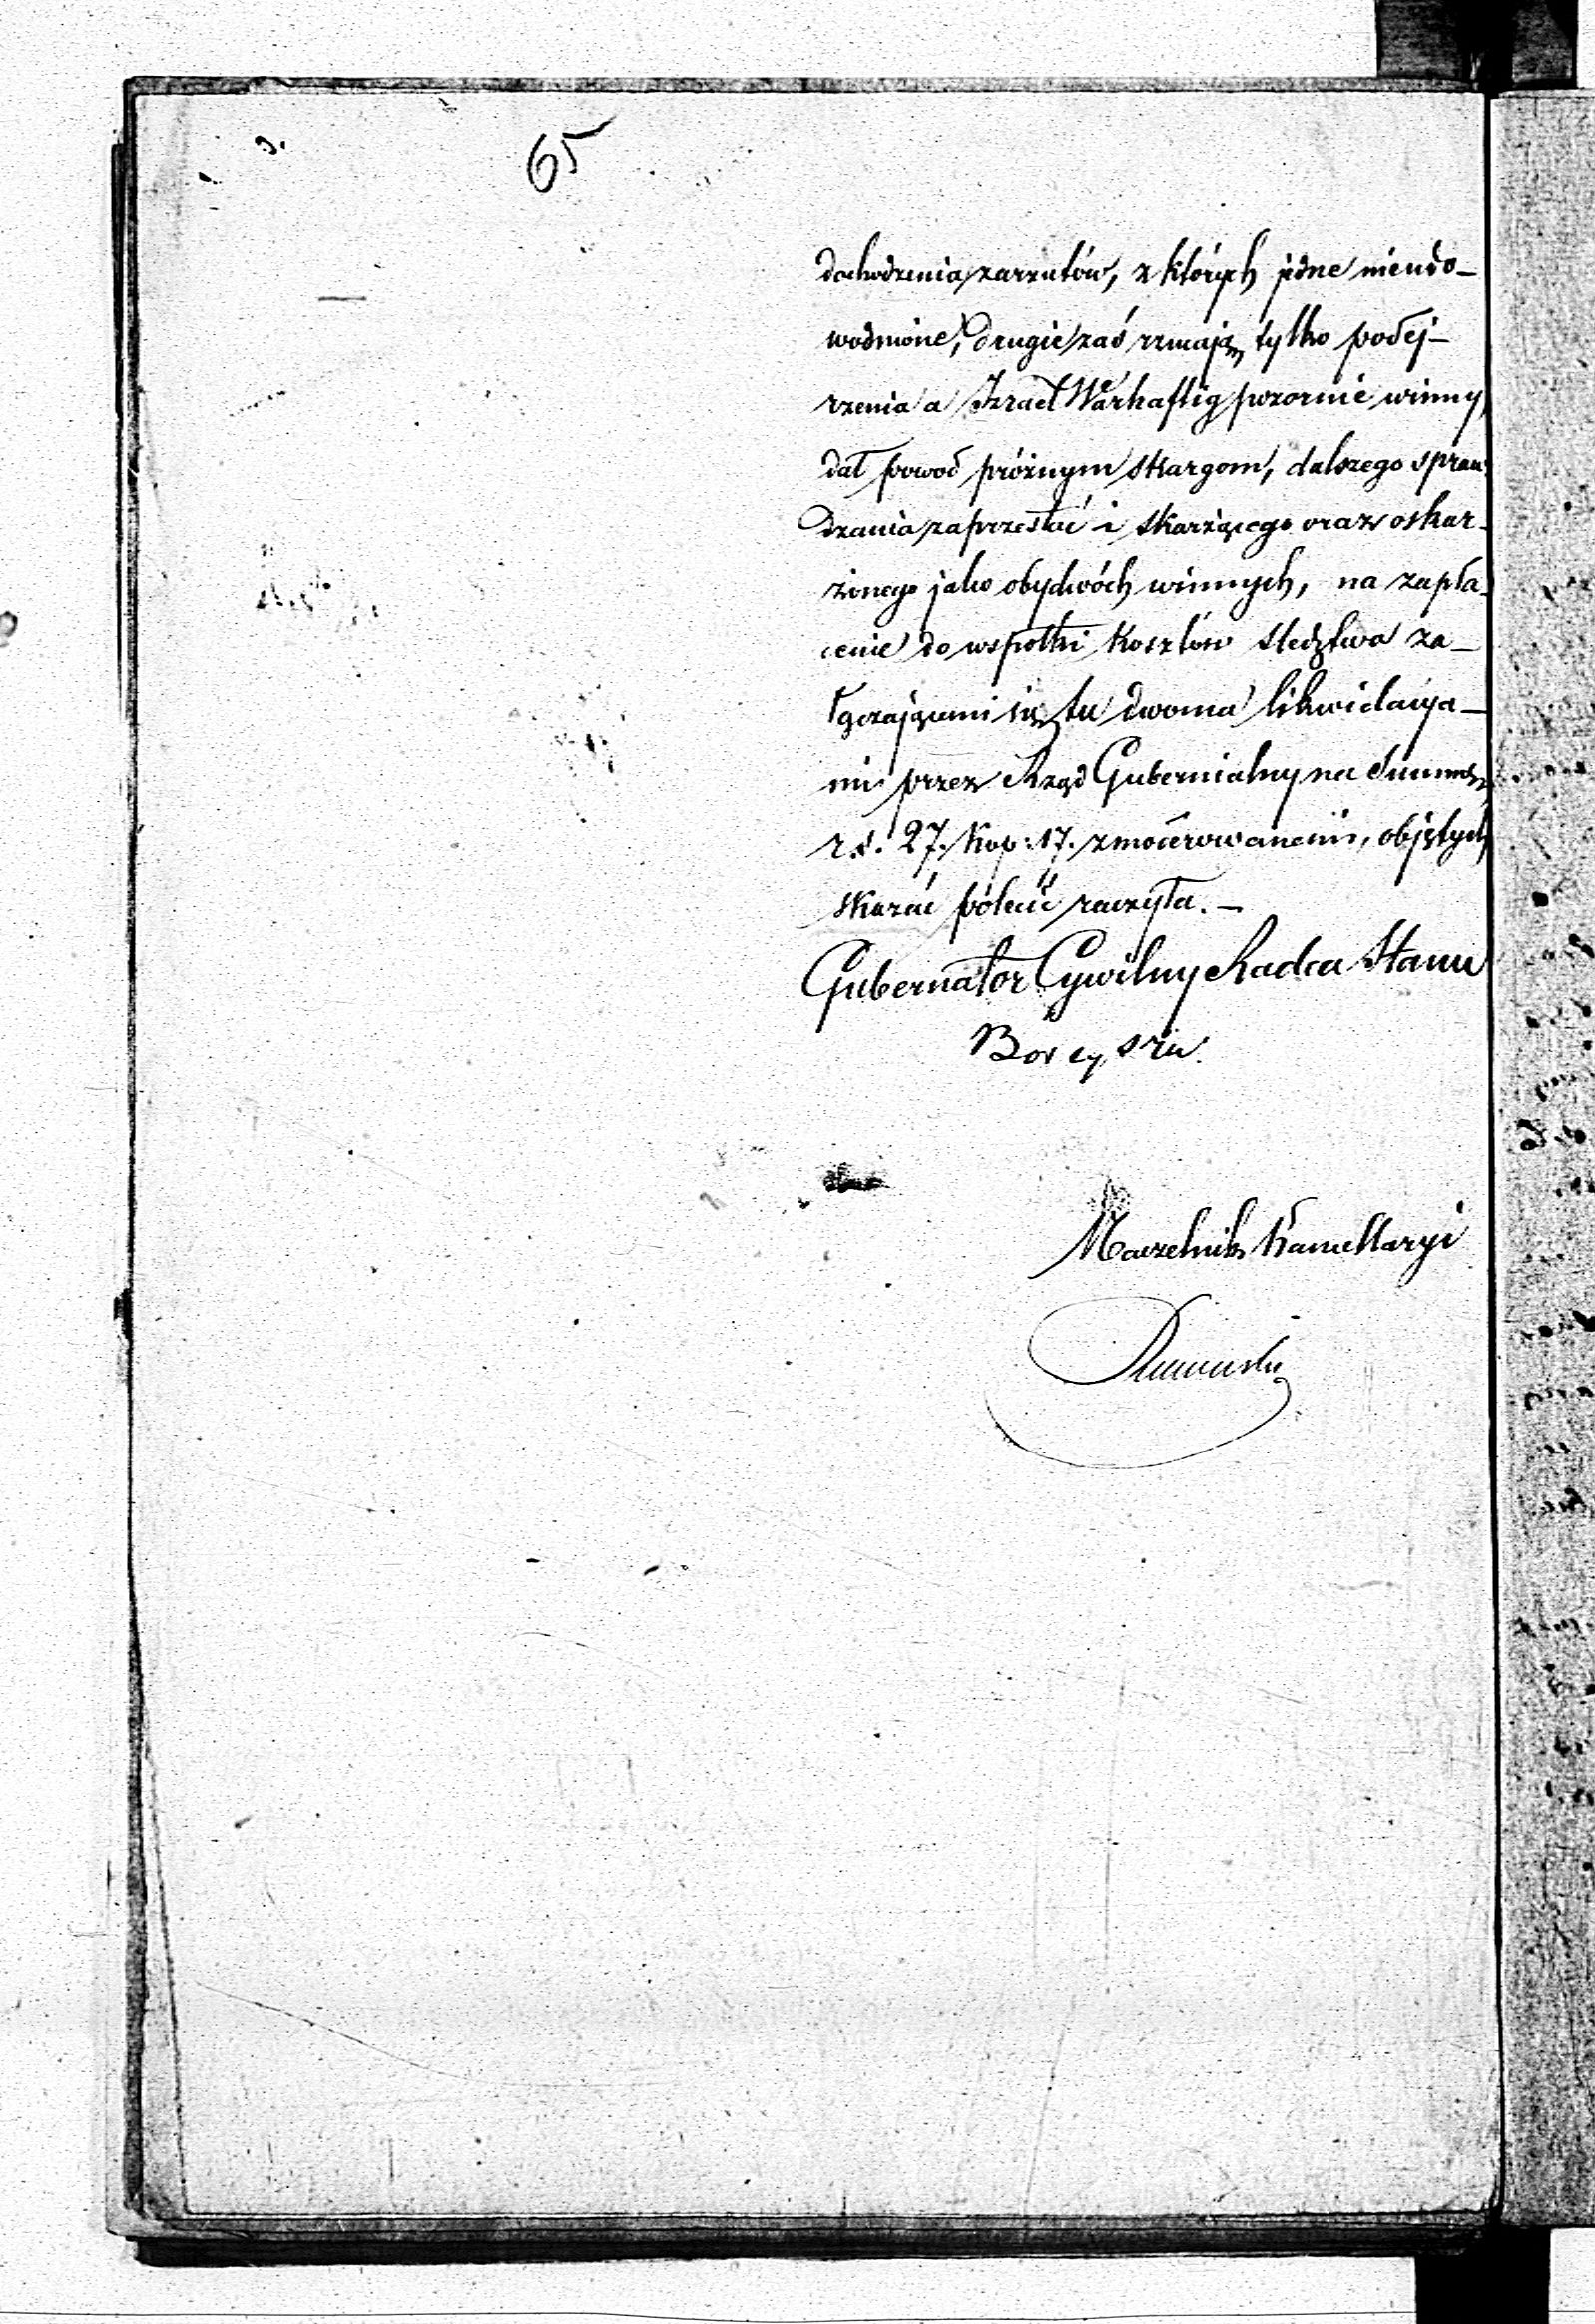 65
dochodzenia zarzutów, z których jedne nieudo-
wodnione, drugie zaś rzucają tylko podej-
rzenia a Izrael Warhaftig pozornie winny,
dał powod próżnym skargom, dalszego spraw
dzania zaprzestać i skarżącego oraz oskar-
żonego jako obydwóch winnych, na zapła-
cenie do wspołki kosztów śledztwa za-
łączającemi się tu dwoma likwidacya-
mi przez Rząd Gubernialny na Summę
rs. 27. kop: 17. zmoderowanemi, objętych
skazać polecić raczyła. -
Gubernator Cywilny Radca Stanu
Naczelnik Kancellaryi